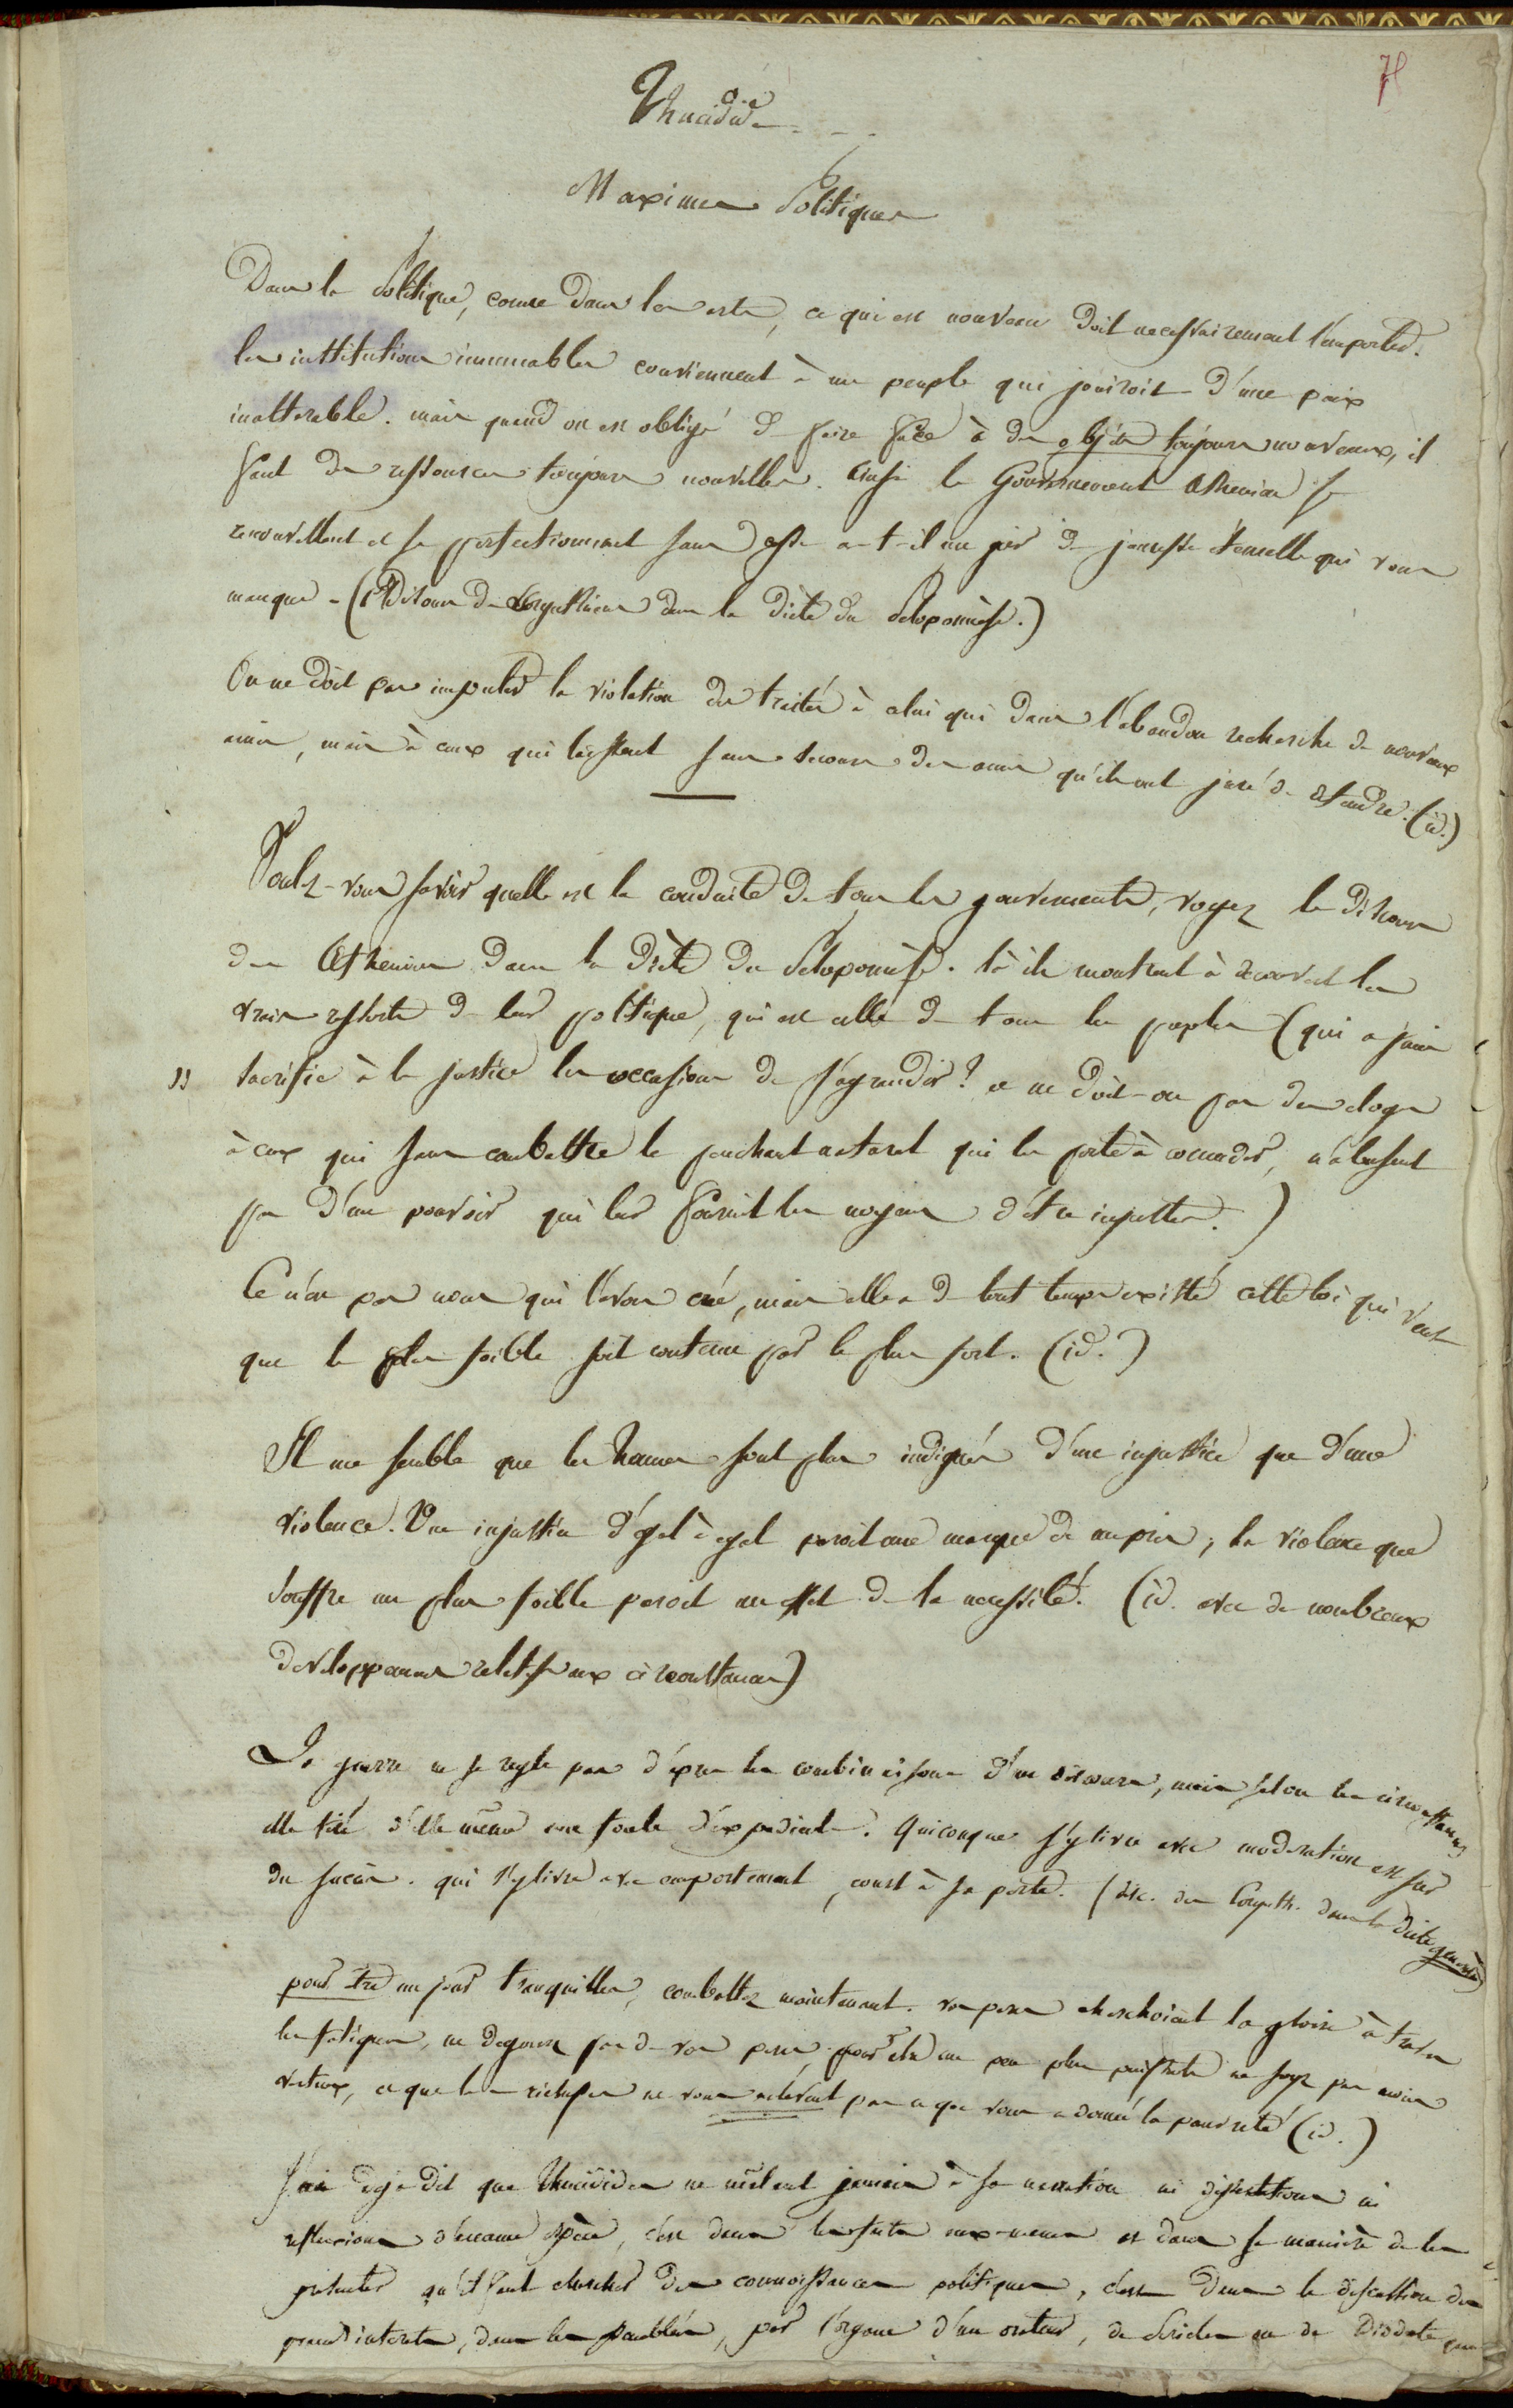 Thucidide
Maximes Politiques
Dans la Politique, come dans les arts, ce qui est nouveau doit necessairement l'emporter.
les institutions immuables conviennent à un peuple qui jouiroit d'une paix
inalterable. mais quand on est obligé de faire face à des objets toujours nouveaux, il
faut des ressources toujours nouvelles. ainsi le Gouvernement Athenien se
renouvellant et se perfectionnant sans cesse a-t-il un air de jeunesse éternelle qui vous
manque - (Discours des Corynthiens dans la diète du Peloponnèse.)
On ne doit pas imputer la violation des traités à celui qui dans l'abandon recherche de nouveaux
amis, mais à ceux qui laissent sans secours des amis qu'ils ont juré de deffendre. (id.)
Voulez-vous savoir quelle est la conduite de tous les gouvernements, voyez le discours
des Atheniens dans la diète du Peloponnèse. là ils montrent à decouvert les
vrais ressorts de leur politique, qui est celle de tous les peuples (qui a jamais
" sacrifié à la justice les occasions de s'agrandir? et ne doit-on pas des eloges
à ceux qui sans combattre le penchant naturel qui les porte à comander, n'abusent
pas d'un pouvoir qui leur fournit les moyens d'être injustes.)
Ce n'est pas nous qui l'avons créé, mais elle a de tout temps existé cette loi qui veut
que le plus foible soit contenu par le plus fort. (id.)
Il me semble que les homes sont plus indignés d'une injustice que d'une
violence. Une injustice d'egal à egal paroit une marque de mepris; la violence que
souffre un plus foible paroit un effet de la necessité. (id. avec de nombreux
developpemens relatifs aux circonstances)
La guerre ne se regle pas d'après les combinaisons d'un discours, mais selon les circonstances
elle tire d'elle même une foule d'expedients. Quiconque s'y livre avec moderation est sur
du succès. qui s'y livre avec emportement, court à sa perte. (disc. des Corynth. dans la diète generale)
pour être un jour tranquilles, combattez maintenant. vos peres cherchoient la gloire à travers
les fatigues, ne degenerez pas de vos peres. pour etre un peu plus puissants ne soyez pas moins
vertueux, et que les richesses ne vous enlèvent pas ce que vous a donné la pauvreté (id.)
J'ai deja dit que Thucidides ne mêlant jamais à sa narration ni dissertations ni
reflexions d'aucune espèce, c'est dans les faits eux-memes et dans sa manière de les
presenter qu'il faut chercher des connoissances politiques, c'est dans la discussion des
grands interets, dans les assemblées, par l'organe d'un orateur, de Pericles ou de Diodote que